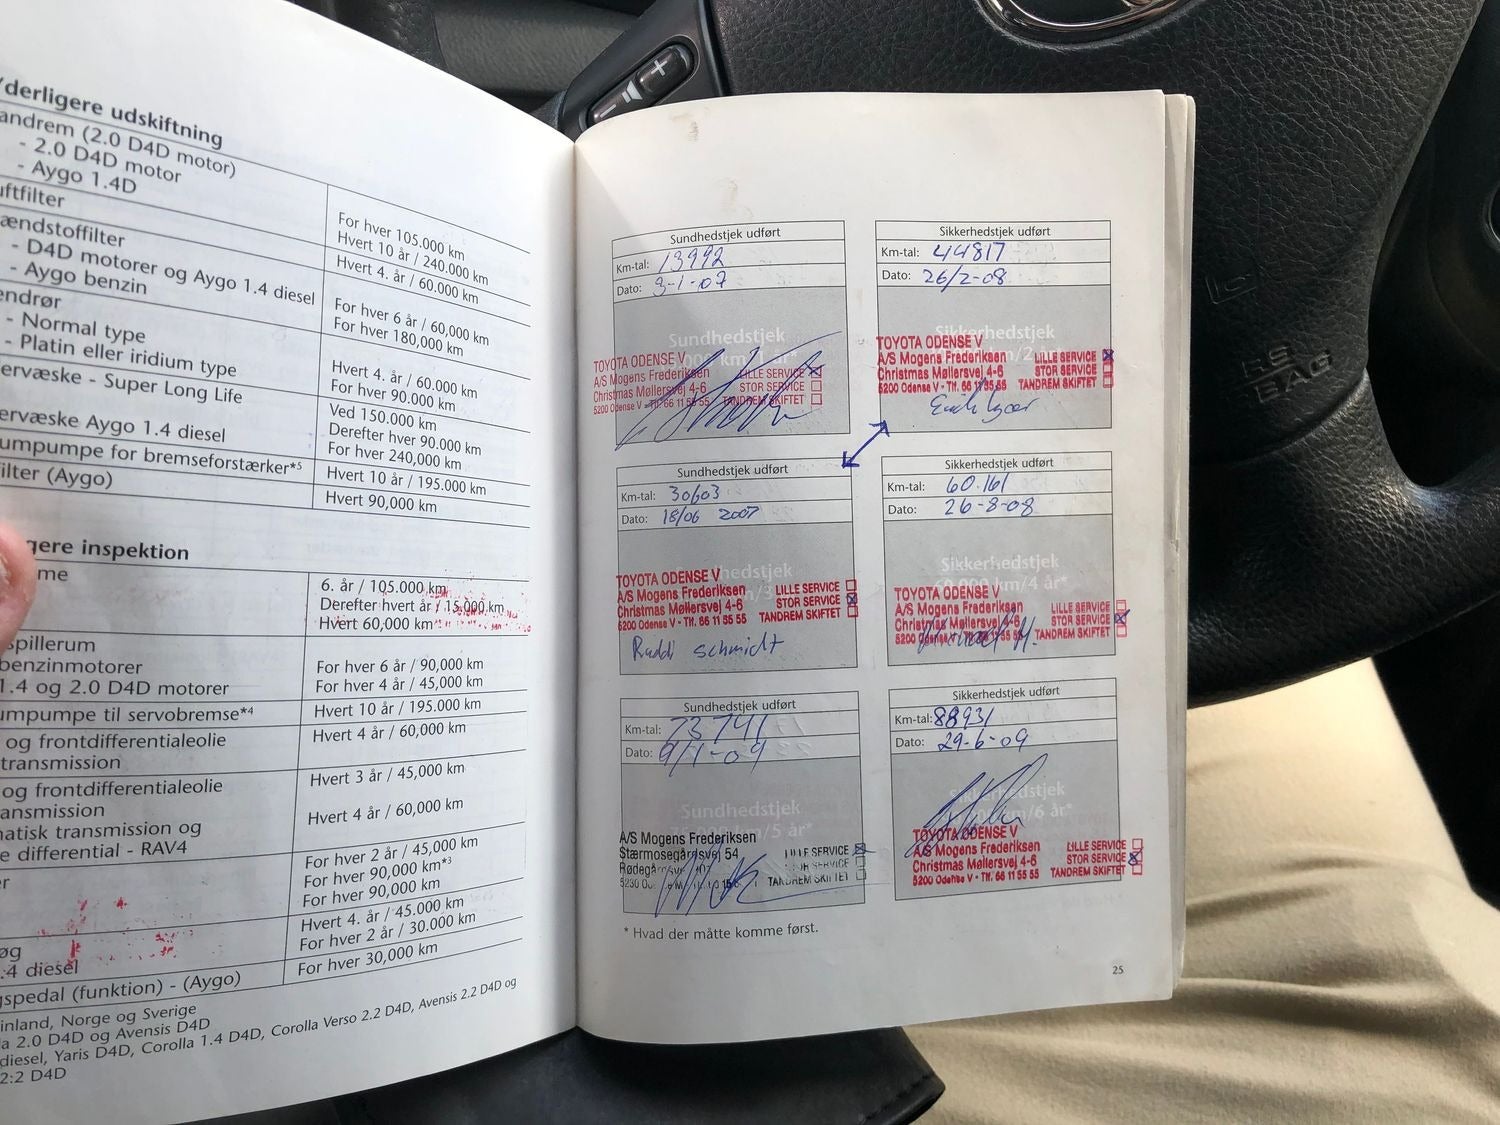 derligere udskiftning
andrem (2.0 D4D motor)
- 2.0 D4D motor
- Aygo 1.4D
For hver 105.000 km
Hvert 10 år / 240.000 km
uftfilter
Hvert 4. år / 60.000 km
ændstoffilter
- D4D motorer og Aygo 1.4 diesel
- Aygo benzin
For hver 6 år / 60,000 km
For hver 180,000 km
endrør
- Normal type
- Platin eller iridium type
Hvert 4. år / 60.000 km
For hver 90.000 km
ervæske - Super Long Life
Ved 150.000 km
Derefter hver 90.000 km
ervæske Aygo 1.4 diesel
For hver 240,000 km
umpumpe for bremseforstærker*5
Hvert 10 år / 195.000 km
filter (Aygo)
Hvert 90,000 km
gere inspektion
me
6. år / 105.000 km
Derefter hvert år / 15.000 km
Hvert 60,000 km
spillerum
benzinmotorer
1.4 og 2.0 D4D motorer
For hver 6 år / 90,000 km
For hver 4 år / 45,000 km
umpumpe til servobremse*4
Hvert 10 år / 195.000 km
og frontdifferentialeolie
transmission
Hvert 4 år / 60,000 km
og frontdifferentialeolie
ansmission
Hvert 3 år / 45,000 km
matisk transmission og
e differential - RAV4
Hvert 4 år / 60,000 km
er
For hver 2 år / 45,000 km
For hver 90,000 km*3
For hver 90,000 km
øg
.4 diesel
Hvert 4. år / 45.000 km
For hver 2 år / 30.000 km
gspedal (funktion) - (Aygo)
For hver 30,000 km
inland, Norge og Sverige
la 2.0 D4D og Avensis D4D
diesel, Yaris D4D, Corolla 1.4 D4D, Corolla Verso 2.2 D4D, Avensis 2.2 D4D og
2:2 D4D
Sundhedstjek udført
Km-tal: 13992
Dato: 3-1-07
Sundhedstjek
000 km/1 år*
TOYOTA ODENSE V
A/S Mogens Frederiksen LILLE SERVICE
Christmas Møllersvej 4-6 STOR SERVICE
5200 Odense V - Tlf. 66 11 55 55 TANDREM SKIFTET
Sikkerhedstjek udført
Km-tal: 44817
Dato: 26/2-08
Sikkerhedstjek
km/2 år*
TOYOTA ODENSE V
A/S Mogens Frederiksen LILLE SERVICE
Christmas Møllersvej 4-6 STOR SERVICE
5200 Odense V - Tlf. 66 11 55 55 TANDREM SKIFTET
Sundhedstjek udført
Km-tal: 30603
Dato: 18/06 2007
Sundhedstjek
km/3
TOYOTA ODENSE V
A/S Mogens Frederiksen LILLE SERVICE
Christmas Møllersvej 4-6 STOR SERVICE
5200 Odense V - Tlf. 66 11 55 55 TANDREM SKIFTET
Ruddi schmidt
Sikkerhedstjek udført
Km-tal: 60.161
Dato: 26-8-08
Sikkerhedstjek
60.000 km/4 år*
TOYOTA ODENSE V
A/S Mogens Frederiksen LILLE SERVICE
Christmas Møllersvej 4-6 STOR SERVICE
5200 Odense V - Tlf. 66 11 55 55 TANDREM SKIFTET
Sundhedstjek udført
Km-tal: 73741
Dato: 9/1-09
Sundhedstjek
km/5 år*
A/S Mogens Frederiksen
Stærmosegårdsvej 54 LILLE SERVICE
STOR SERVICE
TANDREM SKIFTET
Sikkerhedstjek udført
Km-tal: 88931
Dato: 29-6-09
Sikkerhedstjek
km/6 år*
TOYOTA ODENSE V
A/S Mogens Frederiksen LILLE SERVICE
Christmas Møllersvej 4-6 STOR SERVICE
5200 Odense V - Tlf. 66 11 55 55 TANDREM SKIFTET
* Hvad der måtte komme først.
25
SRS
BAG